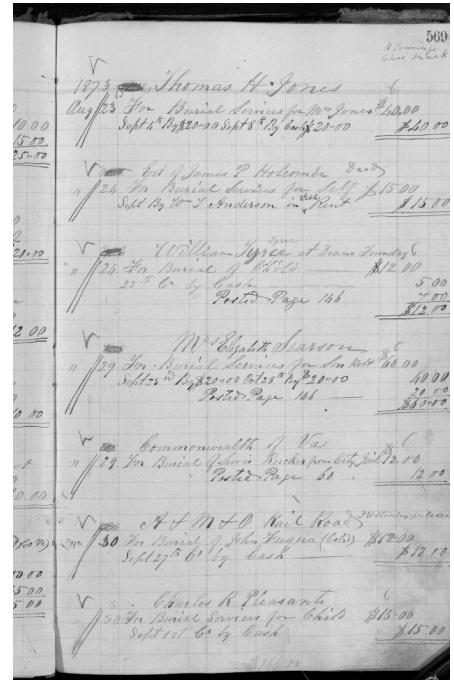 569
1873 Thomas H. Jones 6
Aug 23 For Burial Services for Mrs Jones $40.00
Sept 4th By $20.00 Sept 8th By Cash $20.00 $40.00
Est of James P Holcombe Decd
" 24 For Burial Services for Self $15.00
Sept By Wm T Anderson in Rent $15.00
Tyree
William Tyree at Deans Foundry 6
" 24 For Burial of Child $12.00
25th Cr by Cash 5.00
Posted Page 146 7.00
$12.00
Mrs Elizabeth Searson 6
" 29 For Burial Services for Son Robt $60.00
Sept 23rd By $20.00 Oct 28th By $20.00 40.00
Posted Page 146 20.00
$60.00
Commonwealth of Va 6
" 29 For Burial of Lewis Rucker from City Jail $12.00
Posted Page 60 12.00
A & M & O Rail Road
" 30 For Burial of John Fuqua (Cold) $12.00
Sept 27th Cr by Cash $12.00
Charles R Pleasants 6
30 For Burial Services for Child $15.00
Sept 1st Cr by Cash $15.00
10.00
15.00
25.00
20.00
12.00
10.00
5.00
5.00